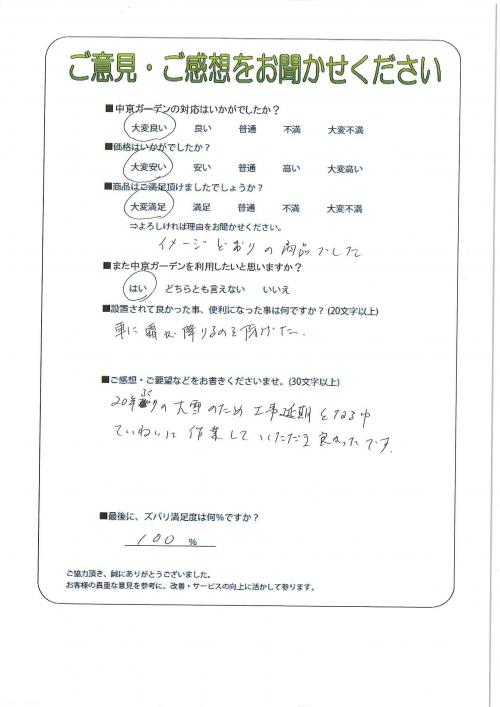 ご意見・ご感想をお聞かせください
■中京ガーデンの対応はいかがでしたか？
大変良い 良い 普通 不満 大変不満
■価格はいかがでしたか？
大変安い 安い 普通 高い 大変高い
■商品はご満足頂けましたでしょうか？
大変満足 満足 普通 不満 大変不満
⇒よろしければ理由をお聞かせください。
イメージどおりの商品でした
■また中京ガーデンを利用したいと思いますか？
はい どちらとも言えない いいえ
■設置されて良かった事、便利になった事は何ですか？(20文字以上)
車に霜が降りるのを防げた.
■ご感想・ご要望などをお書きくださいませ。(30文字以上)
20年ぶりの大雪のため工事延期となる中
ていねいに作業していただき良かったです.
■最後に、ズバリ満足度は何％ですか？
100 %
ご協力頂き、誠にありがとうございました。
お客様の貴重な意見を参考に、改善・サービスの向上に活かして参ります。